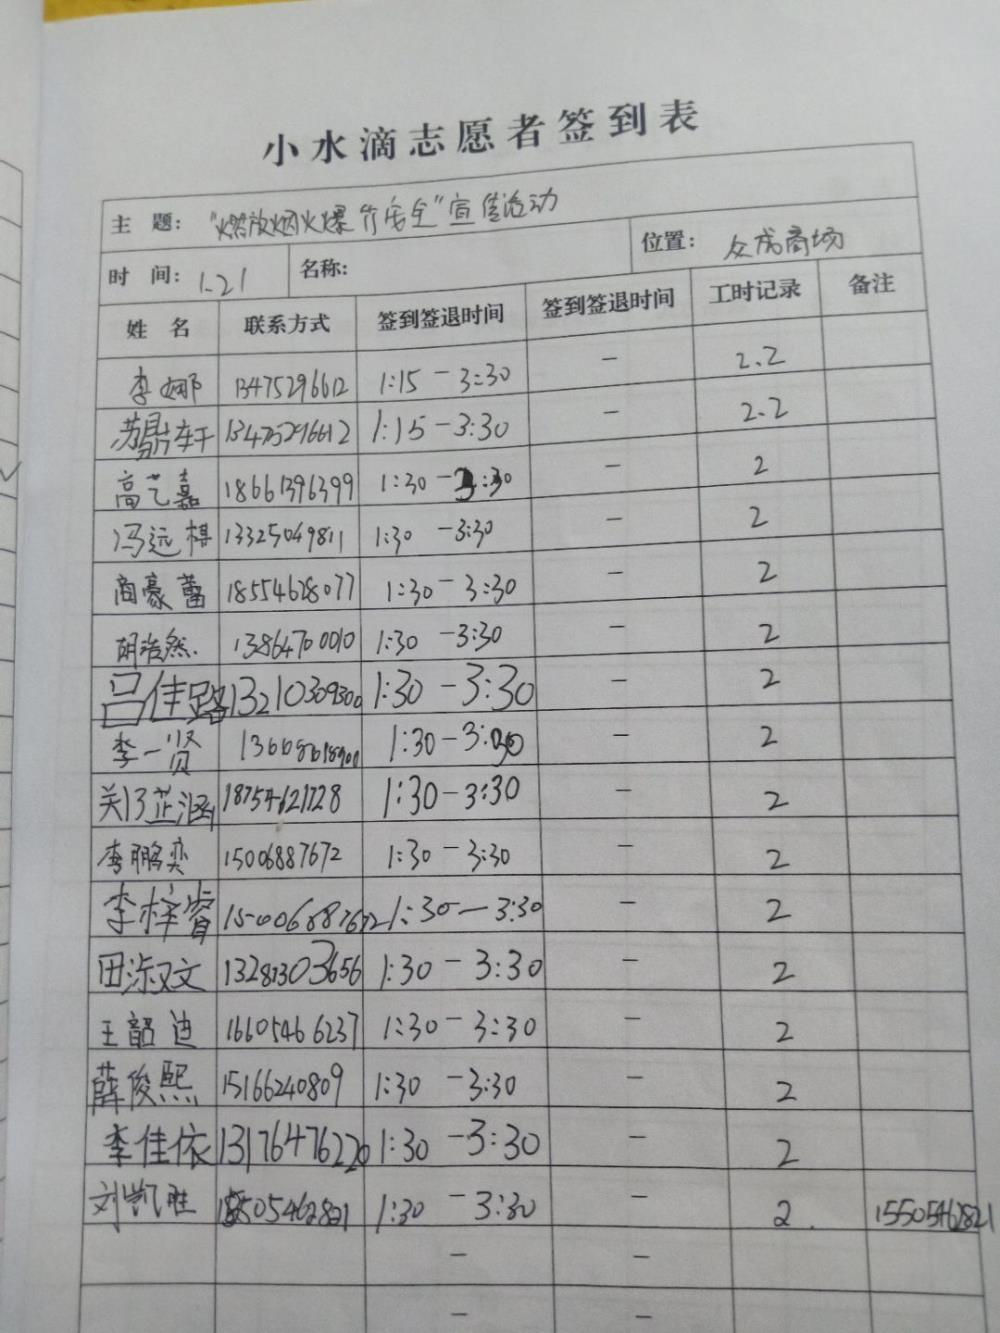 小水滴志愿者签到表
主 题： "燃放烟火爆竹安全"宣传活动
时 间： 1.21 名称： 位置： 众成商场
姓 名 联系方式 签到签退时间 签到签退时间 工时记录 备注
李娜 13475296612 1:15 - 3:30 - 2.2
苏鼎轩 13475296612 1:15 - 3:30 - 2.2
高艺嘉 18661396399 1:30 - 3:30 - 2
冯远棋 13325049811 1:30 - 3:30 - 2
商豪蕾 18554628077 1:30 - 3:30 - 2
胡浩然 13864700010 1:30 - 3:30 - 2
吕佳璐 13210309300 1:30 - 3:30 - 2
李一贤 1:30 - 3:30 - 2
关芷涵 18754621728 1:30 - 3:30 - 2
李鹏奕 15006887672 1:30 - 3:30 - 2
李梓睿 15006887672 1:30 - 3:30 - 2
田淑文 13281303656 1:30 - 3:30 - 2
王韶迪 16605466237 1:30 - 3:30 - 2
薛俊熙 15166240809 1:30 - 3:30 - 2
李佳依 13176476220 1:30 - 3:30 - 2
刘凯胜 15505462821 1:30 - 3:30 - 2. 15505462821
- -
- -